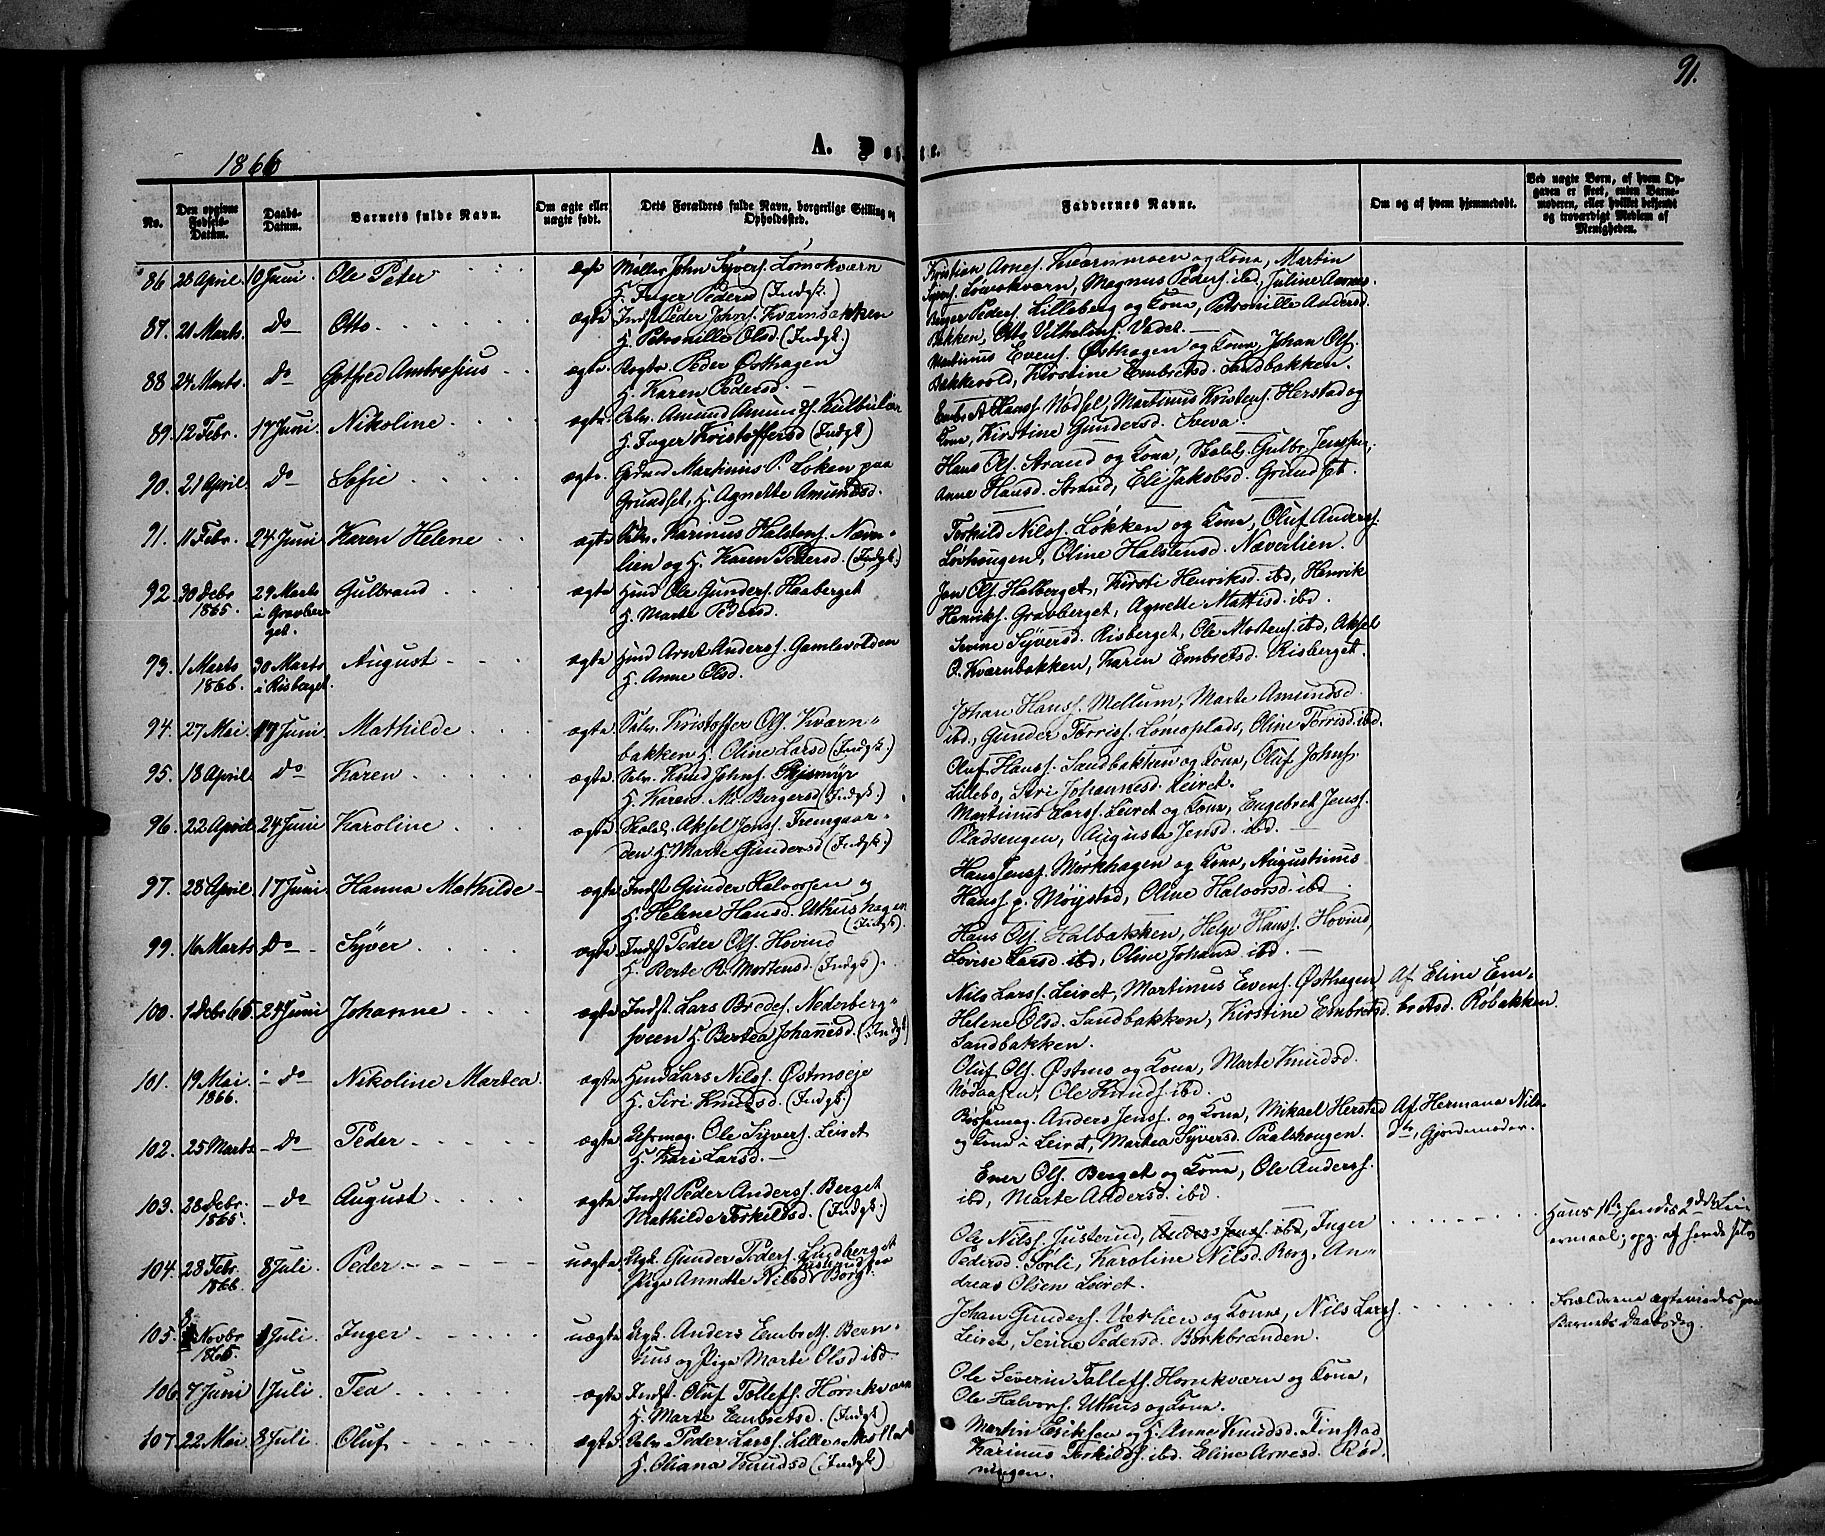 91.
1866
A. Døbte.
No.
Den opgivne Fødsels-Datum.
Daabs-Datum.
Barnets fulde Navn.
Om ægte eller uægte født.
Dets Forældres fulde Navn, borgerlige Stilling og Opholdssted.
Faddernes Navne.
Om og af hvem hjemmedøbt.
Ved uægte Børn, af hvem Opgaven er skeet, enten Barnemoderen, eller hvilket bekjendt og troværdigt Medlem af Menigheden.
86. 28 April. 10 Juni Ole Peter ægte Møller John Syvers. Lømokværn
H. Inger Pedersd (Indgk.)
Kristian Arnes. Kværnmoen og Kona, Martin
Syvers. Lømokværn, Magnus Peders. ibd, Juline Arnes.
87. 21 Marts. do Otto ægte Indst Peder Johns. Kværnbakken
H. Petronille Olsd. (Indgk.)
Berger Peders. Lilleberg og Kona, Petronille Andersd
Bakken, Otto Vilhelms.
88 24 Marts. do Gotfred Ambrosius ægte Peder Østhagen
H. Karen Pedersd.
Martinus Evens. Østhagen og Kona, Johan Ols.
Bakkevold, Kirstine Embretsd. Sandbakken.
89. 12 Febr. 17 Juni. Nikoline ægte Selv. Amund Amunds. Kulbulien
H. Inger Kristoffersd (Indgk.)
Embret Hans. Nødsel, Martinus Kristens. Herstad og
Kona, Kirstine Gundersd. Sveva.
90. 21 April. do Sofie ægte Gdmd Martinius P. Løken paa
Grundset, H. Agnette Amundsd.
Hans Ols. Strand og Kona, Skolel. Gulbr. Jensen,
Anne Hansd. Strand, Eli Jakobsd. Grundset.
91. 11 Febr. 24 Juni Karen Helene ægte Selv. Karinus Halstens. Næver-
lien og H. Karen Pedersd. (Indgk.)
Torkild Nilss. Løkken og Kona, Oluf Anderss.
Lovhougen, Oline Halstensd. Næverlien.
92. 30 Debr 1865. 29 Marts i Gravberget. Gulbrand ægte Huud Ole Gunders. Haaberget
H. Marte Pedersd.
Jon Ols. Halberget, Kirsti Henriksd. ibd, Henrik
Henriks. Gravberget, Agnette Mattisd. ibd.
93. 1 Marts 1866. 30 Marts i Risberget. August ægte Huud Arnt Anderss. Gamlevolden
H. Anne Olsd.
Sevine Syversd. Risberget, Ole Mortens. ibd, Aksel
O. Kværnbakken, Karen Embretsd. Risberget.
94. 27 Mai 17 Juni Mathilde ægte Selv. Kristoffer Ols. Kværn-
bakken H. Oline Larsd (Indgk.)
Johan Hanss. Mellum, Marte Amundsd.
ibd, Gunder Torriss. Lømoplads, Oline Torrisd. ibd.
95. 18 April do Karen ægte Selv. Knud Johns.
H. Karen M. Bergersd (Indgk.)
Oluf Hanss. Sandbakken og Kona, Oluf Johns.
Lillebo, Siri Johannesd. Leiret.
96. 22 April 24 Juni Karoline ægte Skolel. Aksel Jonss. Fremgaar-
den H. Marte Gundersd (Indgk.)
Martinus Larss. Leiret og Kona, Engebret Jenss.
Pladsengen, Augusta Jensd. ibd.
97. 28 April 17 Juni. Hanna Mathilde ægte Indst Gunder Halvorsen og
H. Helene Hansd. Uthushagen
(Indgk.)
Hans Jenss. Mørkhagen og Kona, Augustinus
Hanss. p. Møystad, Oline Halvorsd. ibd
99. 16 Marts Do Syver ægte Indst Peder Ols. Hovind
H. Berte R. Mortensd. (Indgk.)
Hans Ols. Halbakken, Helge Hanss. Hovind,
Lovise Larsd. ibd, Oline Johansd. ibd.
100. 1 Debr 65. 24 Juni Johanne ægte Indst. Lars Bredes. Nederberg-
sveen H. Bertea Johannesd. (Indgk)
Nils Larss. Leiret, Martinus Evens. Østhagen
Helene Olsd. Sandbakken, Kirstine Embretsd.
Sandbakken.
Af Eline Em-
bretsd. Røbakken.
101. 19 Mai 1866. do Nikoline Martea ægte Huud Lars Nilss. Østmoeje
H. Siri Knudsd. (Indgk.)
Oluf Ols. Østmo og Kona, Marte Knudsd.
Nødaasen, Ole Knuds. ibd.
102. 25 Marts do Peder ægte Ole Syvers. Leiret
H. Kari Larsd.
Bøssemag. Anders Jenss. og Kona, Mikael Herstad
og Kona i Leiret, Martea Syversd. Paalshougen.
Af Hermana Nils-
dtr, Gjordemoder.
103. 28 Debr. 1865. do August ægte Indst Peder Anderss. Berget
Mathilde Torkildsd. (Indgk.)
Ener Ols. Berget og Kona, Ole Anderss.
ibd, Marte Andersd. ibd.
104. 28 Febr. 1866. 8 Juli. Peder uægte Ugk. Gunder Peders. Lundberget
Pige Annette Nilsd. Berg.
Ole Nilss. Justerud, Anders Jenss. ibd, Inger
Pedersd. Sørli, Karoline Nilsd. Berg, An-
dreas Olsen Leiret.
Hans 1ste, hendes 2det Lei-
ermaal; opg. af hende selv
105. 8 Novbr 1865. 1 Juli. Inger uægte Ugk. Anders Embrets. Bern-
hus og Pige Marte Olsd ibd.
Johan Gunders. Væslien og Kona, Nils Larss.
Leiret, Serine Pedersd. Birkbrænden.
Forældrene ægteviedes paa
Barnets Daabsdag.
106 7 Juni 1 Juli. Tea ægte Indst. Oluf Tollefs. Hornkværn
H. Marte Embretsd. (Indgk.)
Ole Severin Tollefs. Hornkværn og Kona,
Ole Halvors. Uthus og Kona.
107. 22 Mai 8 Juli. Oluf ægte Selv Peder Larss. Lille-
H. Oliana Knudsd (Indgk.)
Martin Eriksen og H. Anne Knudsd. Finstad
Karinus Torkilds. ibd. Eline Arnesd. Rød-
ningen.